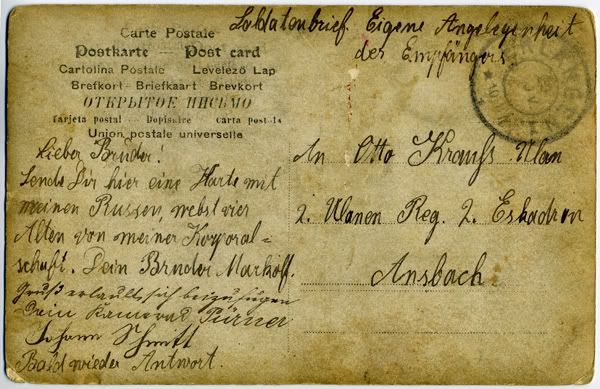 Carte Postale
Postkarte — Post card
Cartolina Postale Levelező Lap
Brefkort - Briefkaart Brevkort
ОТКРЫТОЕ ПИСЬМО
Tarjeta postal — Dopisnice Carta posta
Union postale universelle
Soldatenbrief. Eigene Angelegenheit
des Empfängers
Lieber Bruder!
Sende Dir hier eine Karte mit
meinen Russen, nebst vier
Alten von meiner Korporal-
schaft. Dein Bruder
Gruß erlaubt sich beizufügen
Dein Kamerad
Johann Schmitt
Bald wieder Antwort.
An Otto Krauß Ulan
2. Ulanen Reg. 2. Eskadron
Ansbach